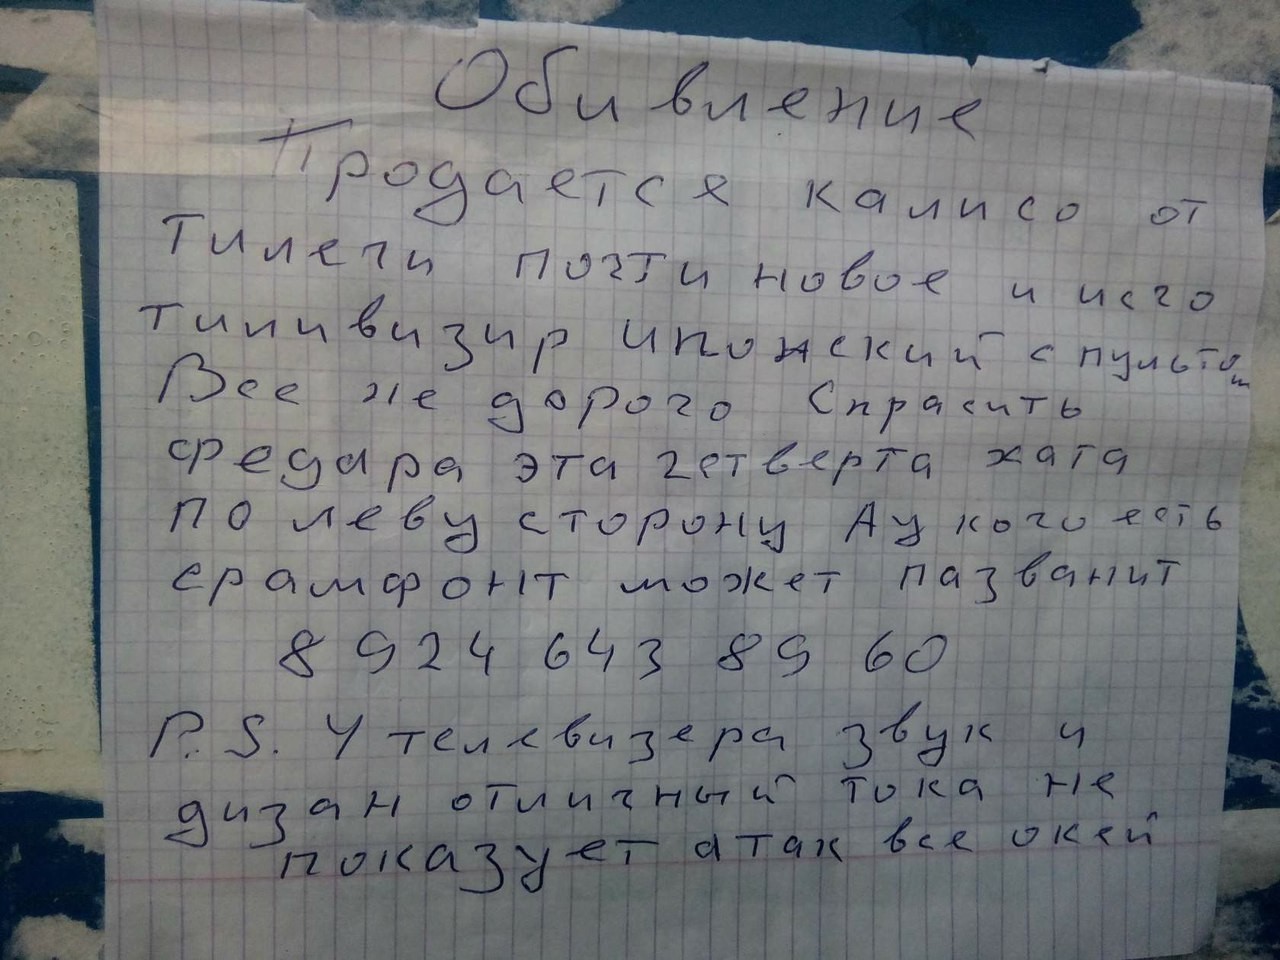 Обивление
Продается калисо от
тилеги почти новое и исчо
тиливизир ипонский с пультом
Все не дорого Спрасить
федара эта четверта хата
по леву сторону А у кого есть
срамфонт может пазванит
8 924 643 89 60
P.S. У телевизера звук и
дизан отличный тока не
показует а так все окей